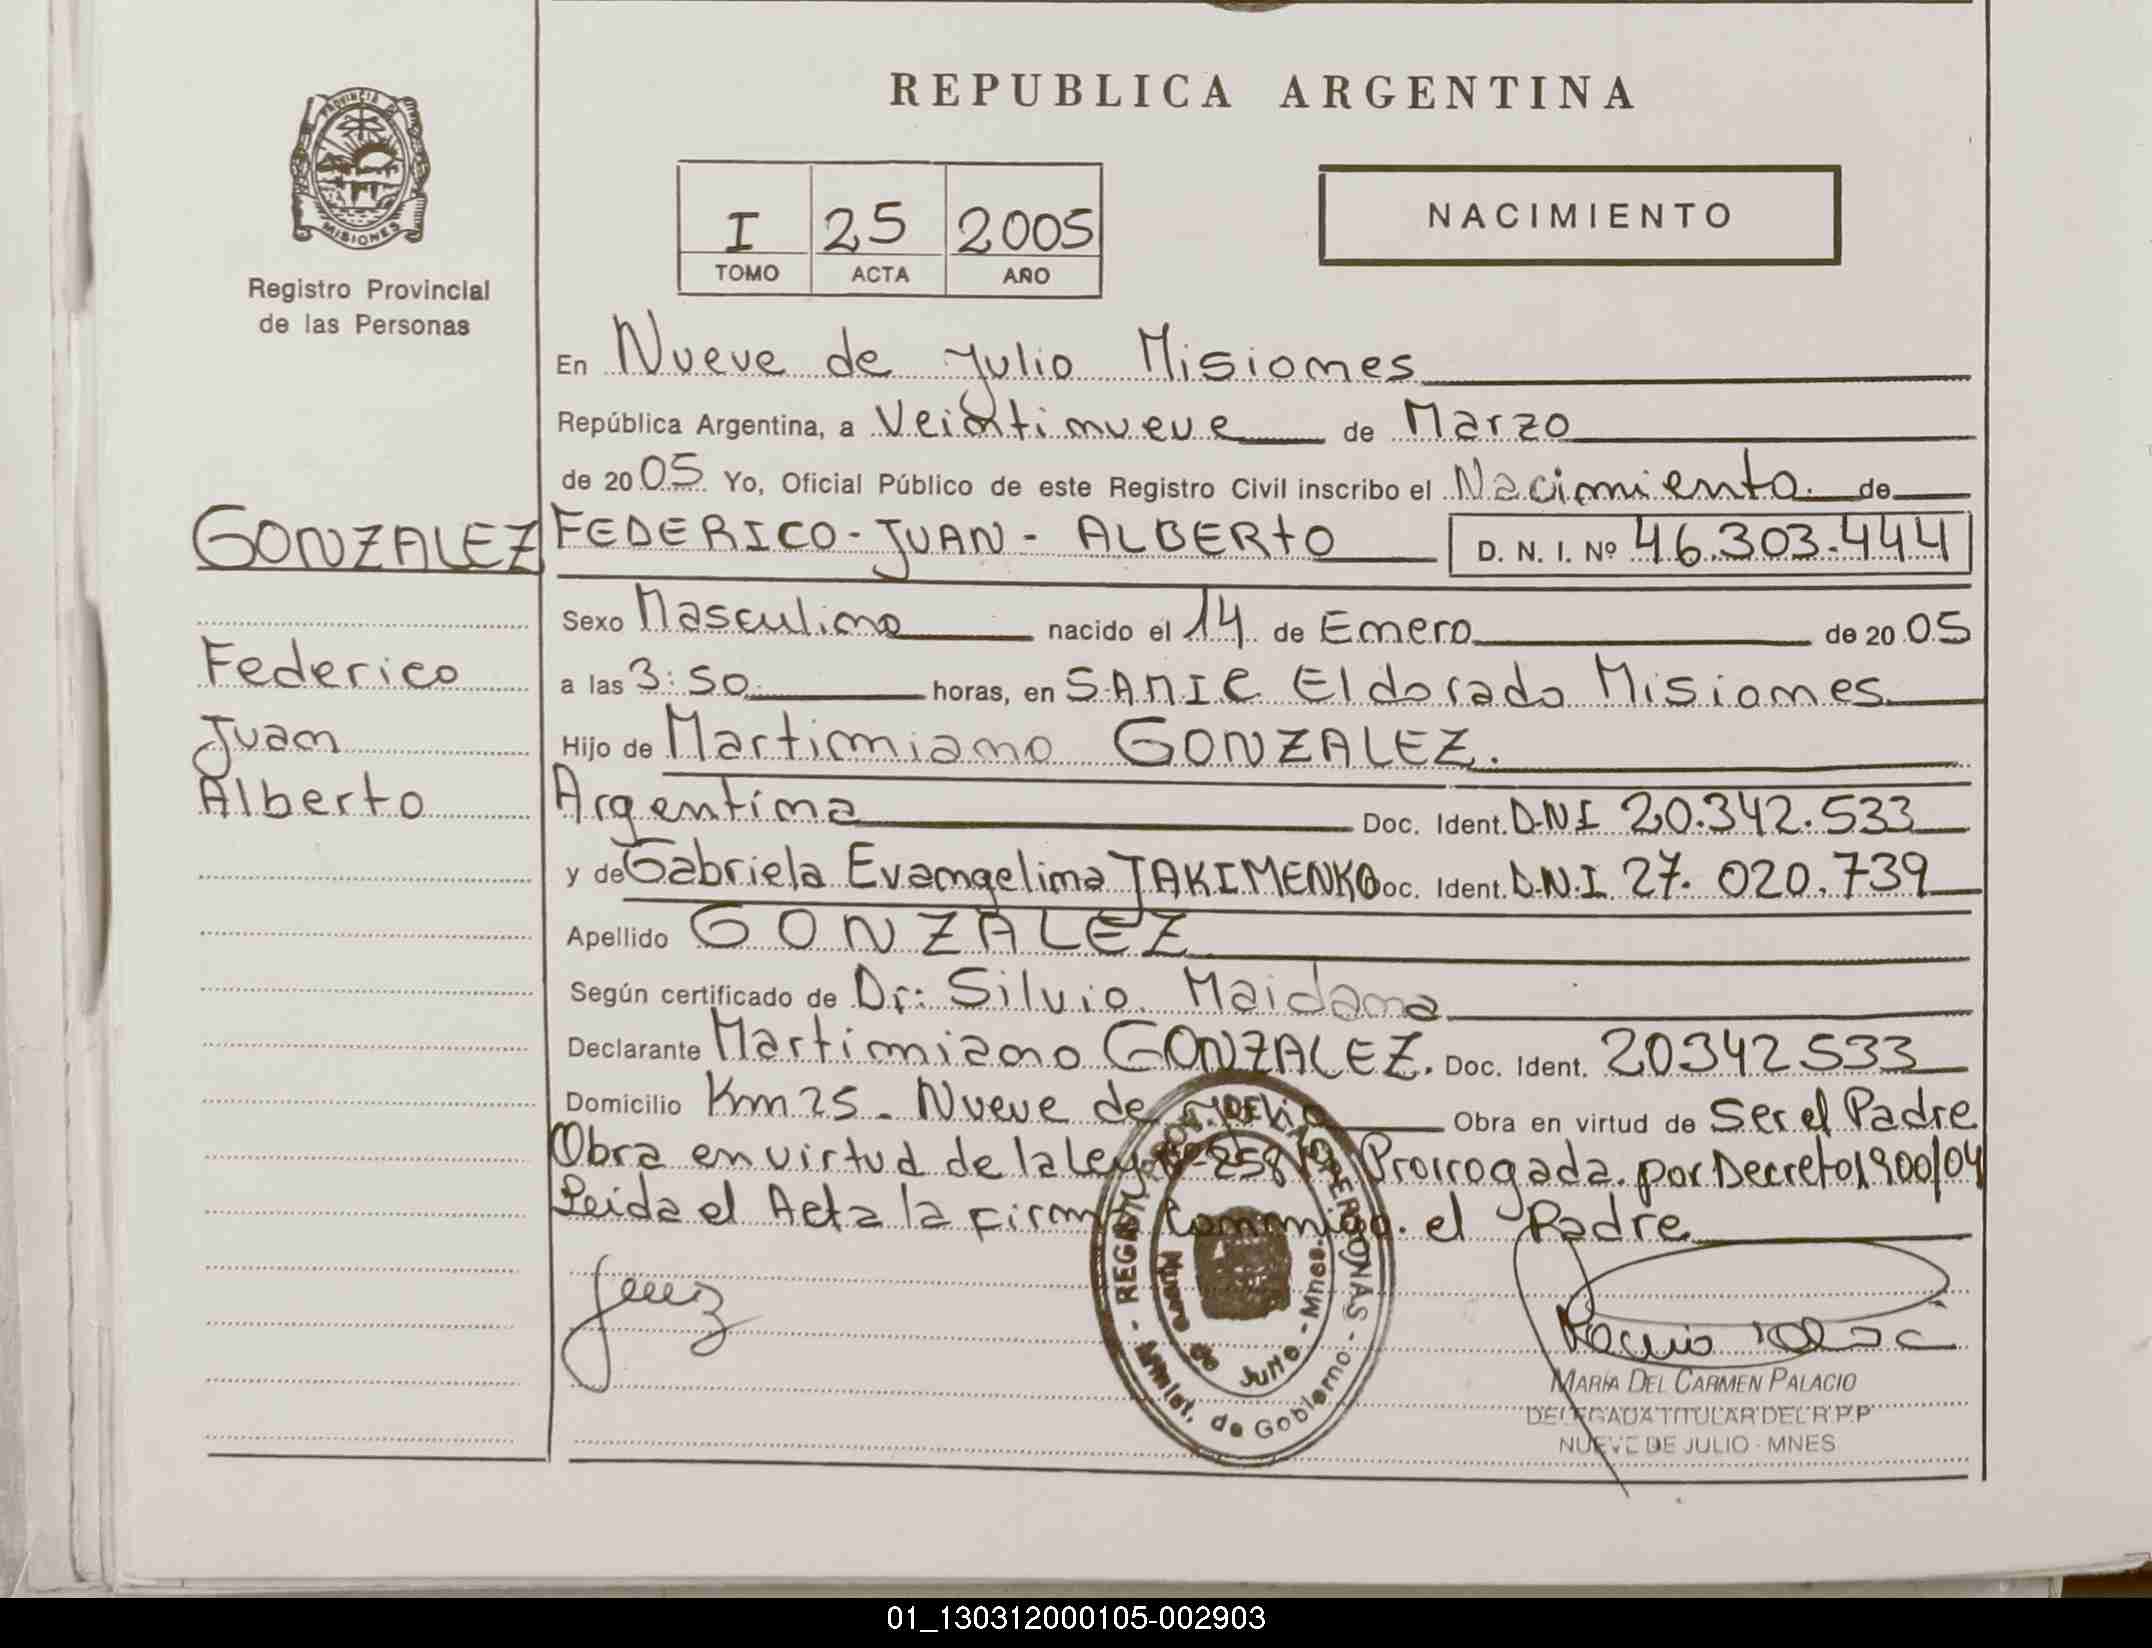 REPUBLICA ARGENTINA
PROVINCIA DE
MISIONES
Registro Provincial
de las Personas
I 25 2005
TOMO ACTA AÑO
NACIMIENTO
En Nueve de Julio Misiones
República Argentina, a Veintinueve de Marzo
de 2005 Yo, Oficial Público de este Registro Civil inscribo el Nacimiento de
GONZALEZ FEDERICO - JUAN - ALBERTO D. N. I. Nº 46.303.444
Sexo Masculino nacido el 14 de Enero de 2005
Federico
a las 3:50 horas, en S.A.M.I.C. Eldorado Misiones
Juan
Hijo de Martiniano GONZALEZ.
Alberto
Argentina Doc. Ident. D.N.I 20.342.533
y de Gabriela Evangelina JAKIMENKO Doc. Ident. D.N.I. 27.020.739
Apellido GONZALEZ
Según certificado de Dr: Silvio Maidana
Declarante Martiniano GONZALEZ. Doc. Ident. 20342533
Domicilio Km 25 - Nueve de Julio Obra en virtud de Ser el Padre
Obra en virtud de la Ley Prorrogada por Decreto 1900/04
Leida el Acta la firma conmigo. el Padre
REGISTRO PROV. DE LAS PERSONAS - Minist. de Gobierno -
Nueve de Julio - Mnes.
MARÍA DEL CARMEN PALACIO
DELEGADA TITULAR DEL R.P.P
NUEVE DE JULIO - MNES
01_130312000105-002903